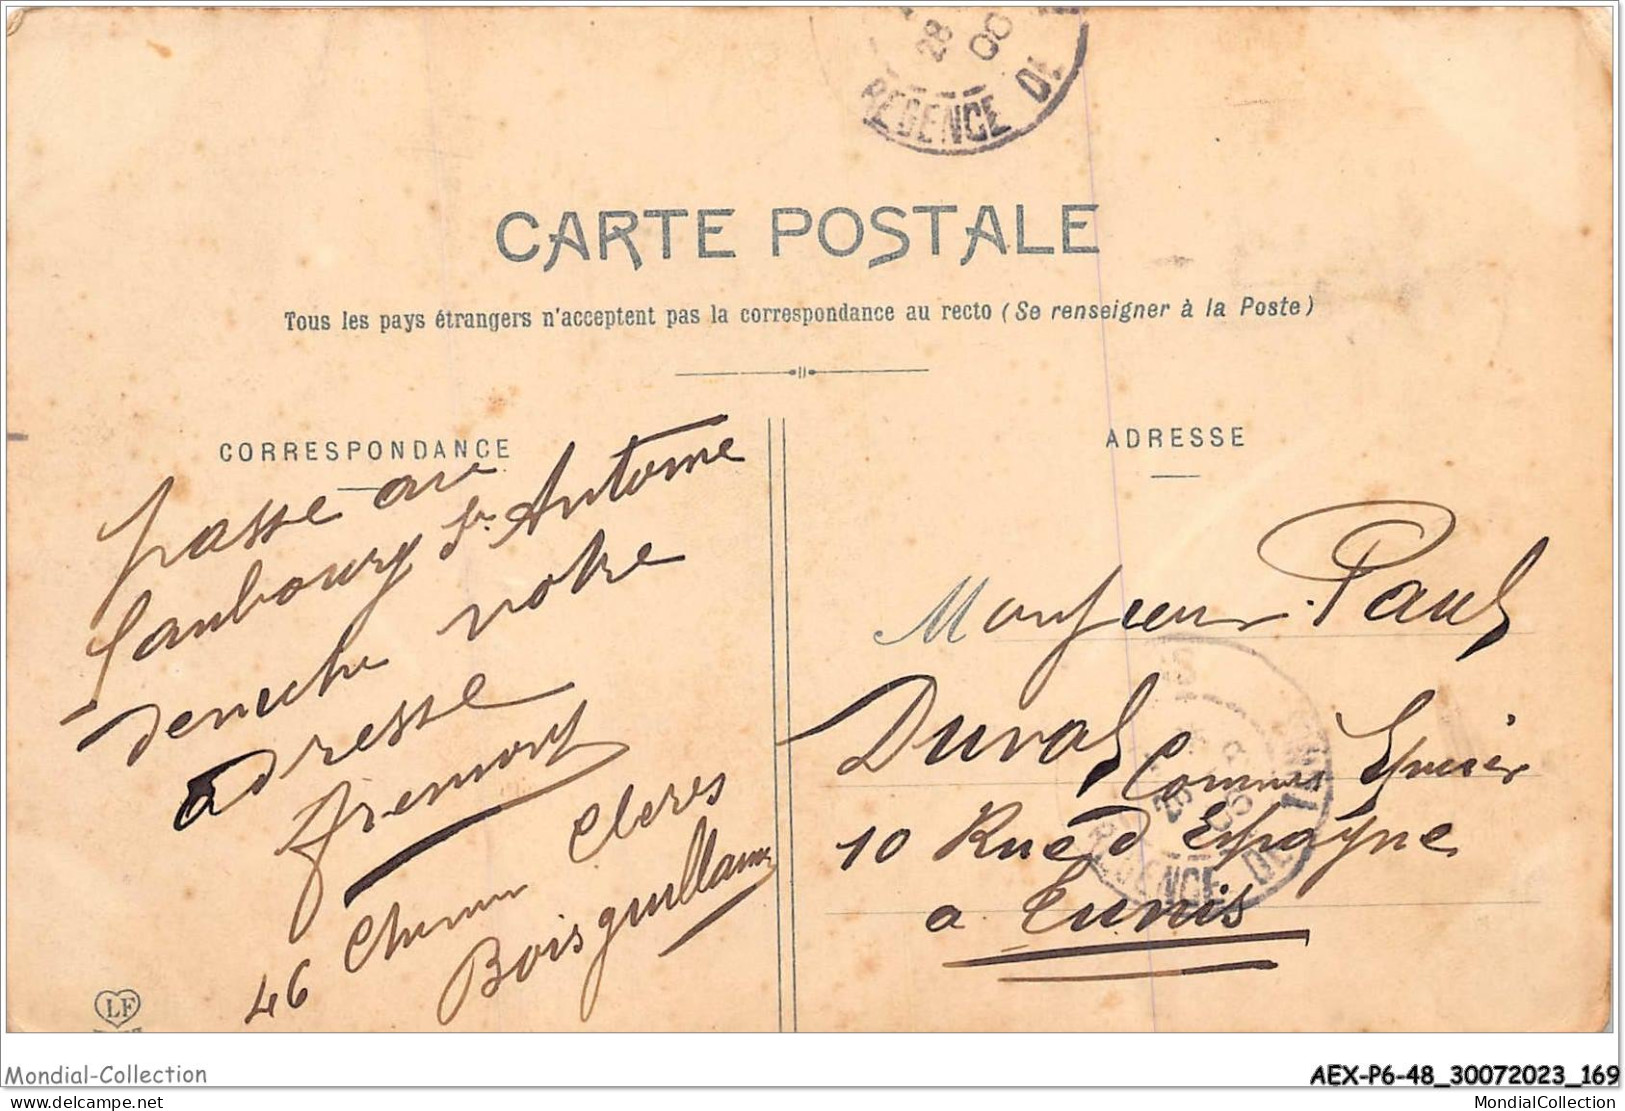 28
00
REGENCE DE
CARTE POSTALE
Tous les pays étrangers n'acceptent pas la correspondance au recto (Se renseigner à la Poste)
CORRESPONDANCE
passe au
faubourg St Antoine
votre
adresse
Fremont
46 Chemin Cleres
Bois guillaume
LF
ADRESSE
Monsieur Paul
Duval
10 Rue d Espagne
a Tunis
28
REGENCE DE
Mondial-Collection
AEX-P6-48_30072023_169
delcampe.net
MondialCollection